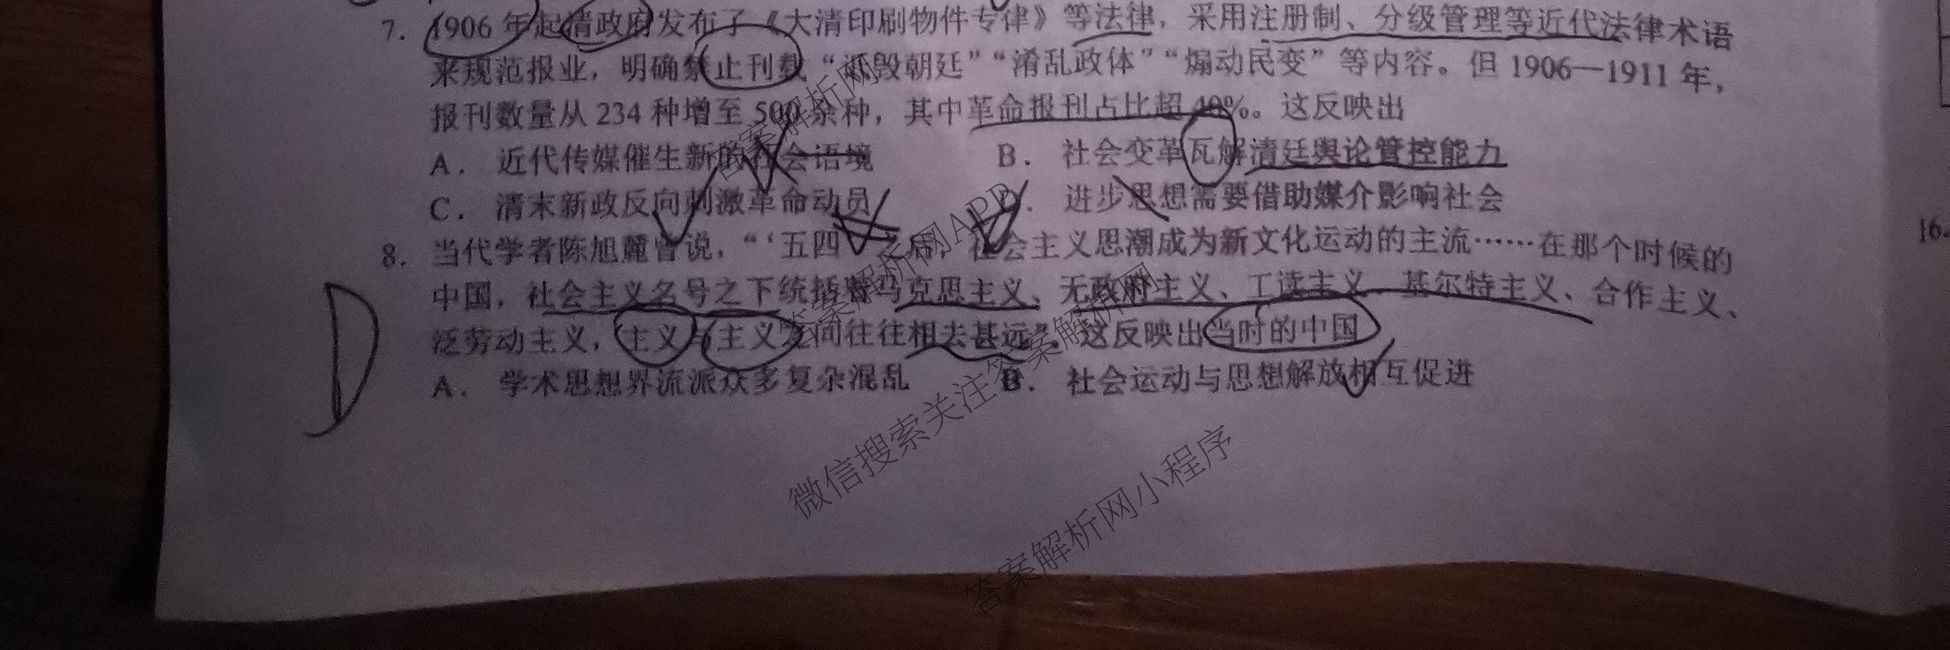 7. 1906 年起清政府发布了《大清印刷物件专律》等法律，采用注册制、分级管理等近代法律术语
来规范报业，明确禁止刊载“诋毁朝廷”“淆乱政体”“煽动民变”等内容。但 1906—1911 年，
报刊数量从 234 种增至 500 余种，其中革命报刊占比超 40%。这反映出
A. 近代传媒催生新的社会语境 B. 社会变革瓦解清廷舆论管控能力
C. 清末新政反向刺激革命动员 D. 进步思想需要借助媒介影响社会
8. 当代学者陈旭麓曾说，“‘五四’之后，社会主义思潮成为新文化运动的主流……在那个时候的
中国，社会主义名号之下统括着马克思主义、无政府主义、工读主义、基尔特主义、合作主义、
泛劳动主义，主义与主义之间往往相去甚远”。这反映出当时的中国
A. 学术思想界流派众多复杂混乱 B. 社会运动与思想解放相互促进
D
16.
答案解析网APP
微信搜索关注答案解析网
答案解析网小程序